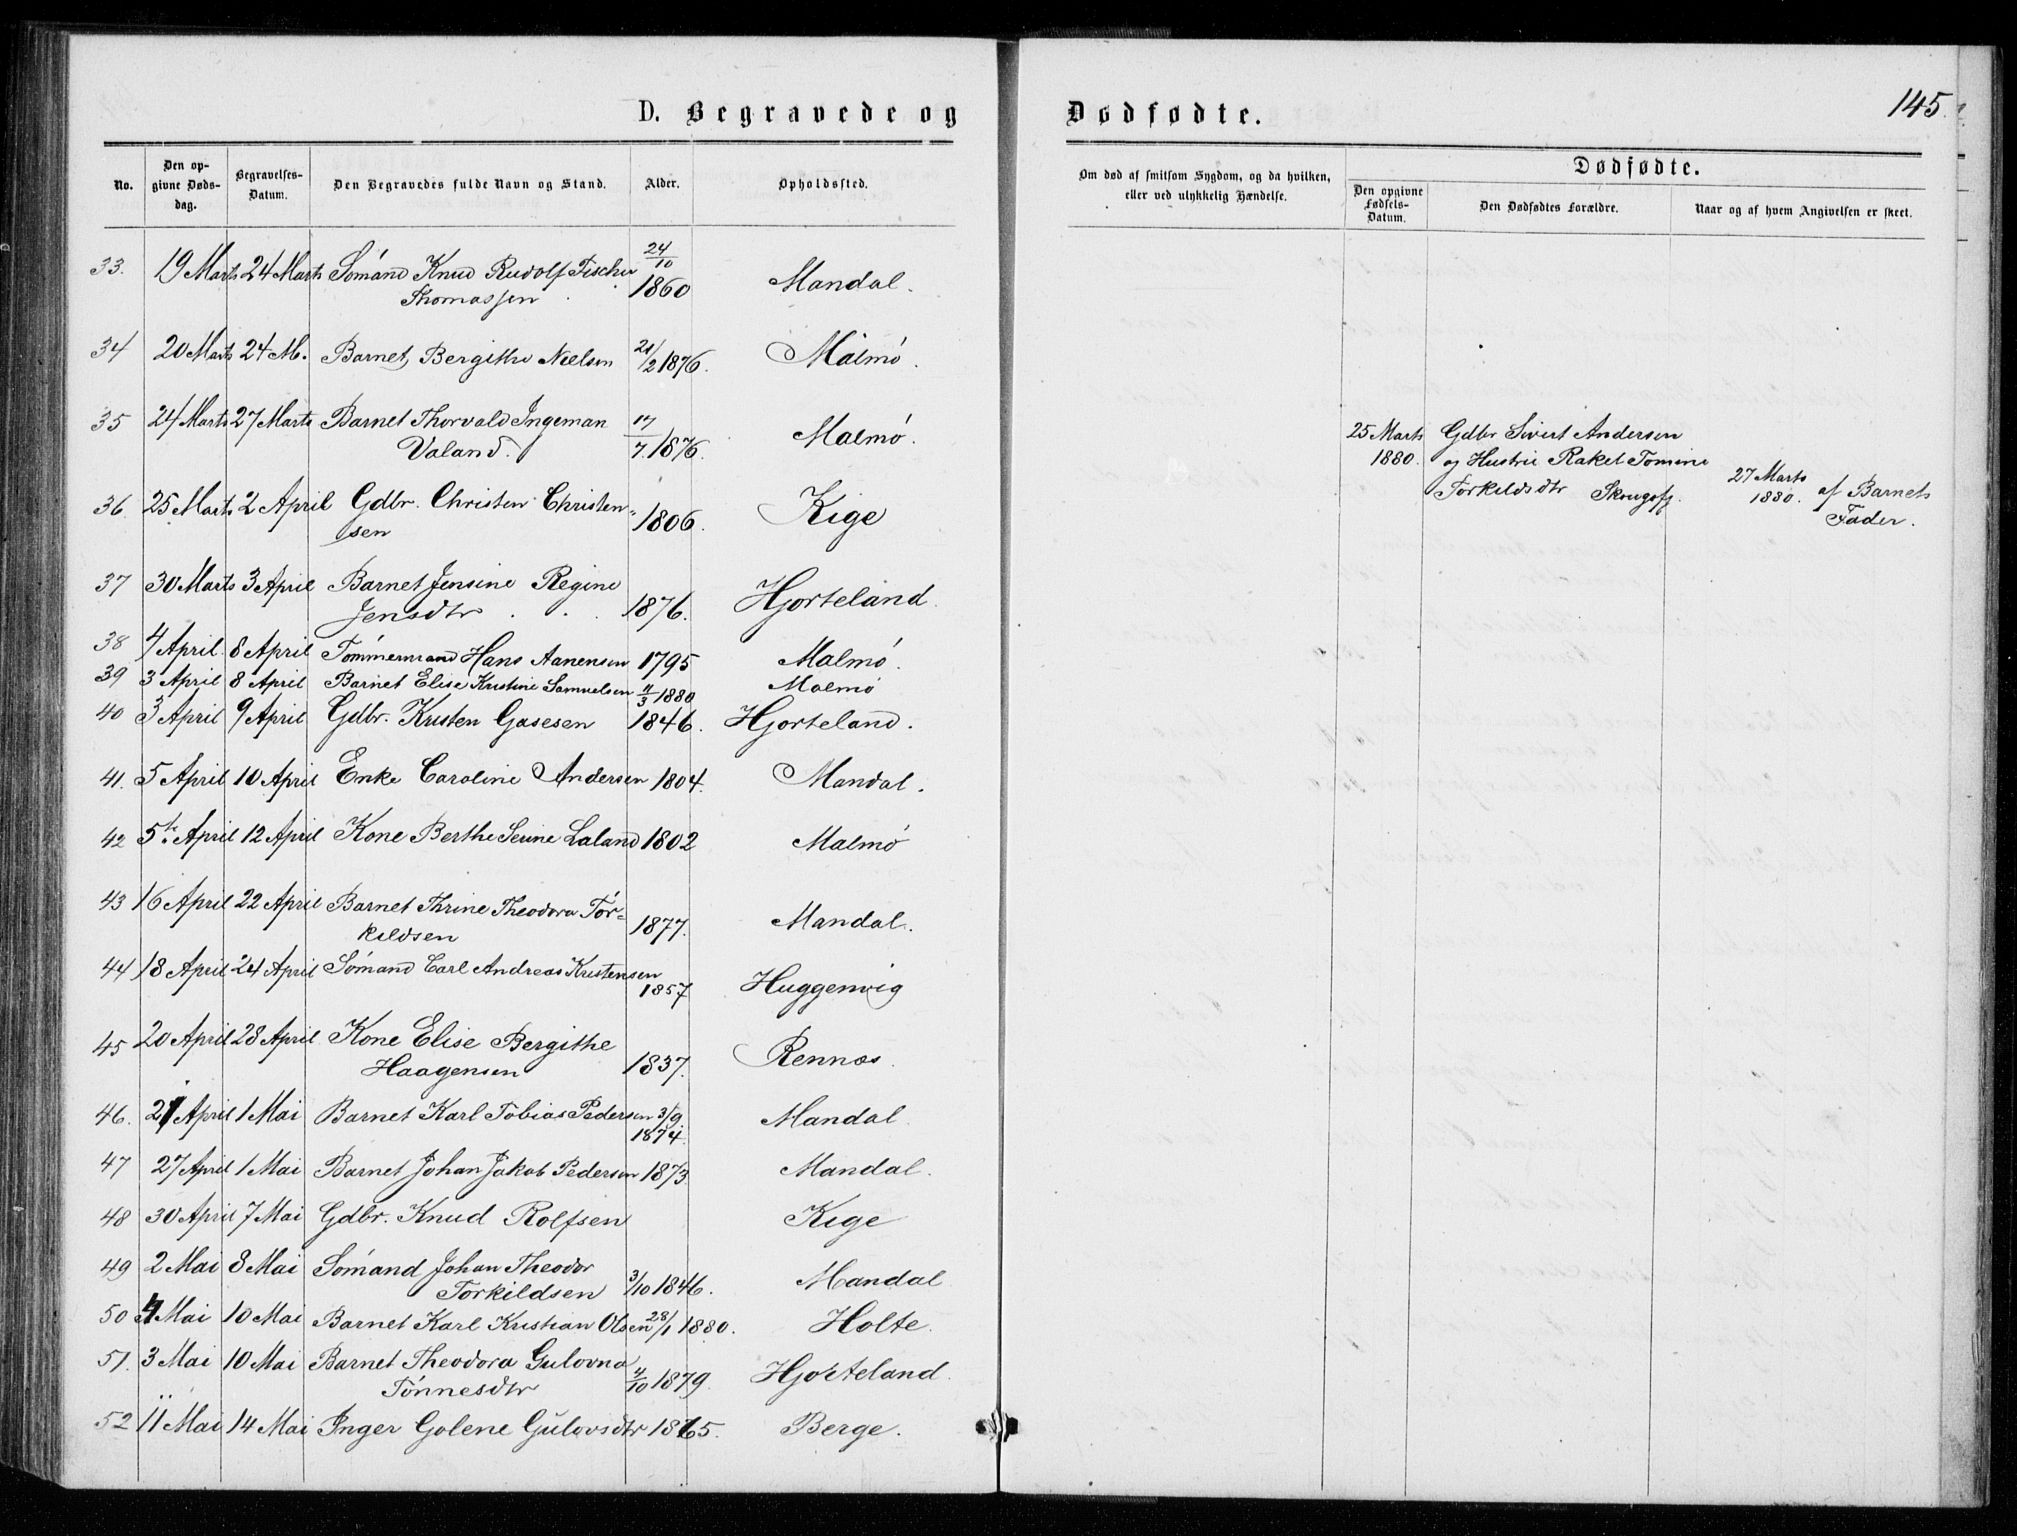 D. Begravede og Dødfødte.
145.
No. Den opgivne Dødsdag. Begravelses-Datum. Den Begravedes fulde Navn og Stand. Alder. Opholdssted.
Om død af smitsom Sygdom, og da hvilken, eller ved ulykkelig Hændelse.
Dødfødte.
Den opgivne Fødsels-Datum. Den Dødfødtes Forældre. Naar og af hvem Angivelsen er skeet.
33. 19 Marts 24 Marts Sømand Knud Rudolf Fischer 24/10
Thomassen 1860 Mandal.
34 20 Marts 24 M. Barnet Bergithe Nielsen 21/2 1876. Malmø.
35 24 Marts 27 Marts Barnet Thorvald Ingeman 17/7
Valand. 1876. Malmø.
36 25 Marts 2 April Gdbr. Christen Christen-
sen 1806. Kige
37 30 Marts 3 April Barnet Jensine Regine
Jensdtr 1876. Hjorteland.
38 4 April 8 April Tømmermand Hans Aanensen 1795 Malmø.
39 3 April 8 April Barnet Elise Kristine Samuelsen 11/3 1880 Malmø
40 3 April 9 April Gdbr. Kristen Gasesen 1846. Hjorteland.
41. 5 April 10 April Enke Caroline Andersen 1804. Mandal.
42 5te April 12 April Kone Berthe Serine Laland 1802 Malmø
43 16 April 22 April Barnet Thrine Theodora Tor-
kildsen 1877. Mandal.
44 18 April 24 April Sømand Carl Andreas Kristensen
1857 Huggenvig
45 20 April 28 April Kone Elise Bergithe
Haagensen 1837. Rennes.
46. 21 April 1 Mai Barnet Karl Tobias Pedersen 3/9
1874. Mandal.
47 27 April 1 Mai Barnet Johan Jakob Pedersen 1873 Mandal.
48 30 April 7 Mai Gdbr. Knud Rolfsen Kige
49 2 Mai 8 Mai Sømand Johan Theodor
Torkildsen 3/10 1846. Mandal
50 4 Mai 10 Mai Barnet Karl Kristian Olsen 28/1 1880. Holte.
51. 3 Mai 10 Mai Barnet Theodora Gulovna
Tønnesdtr 4/10 1879. Hjorteland.
52 11 Mai 14 Mai Inger Golene Gulovsdtr 1865. Berge.
25 Marts Gdbr Sivert Andersen
1880. og Hustru Rakel Tomine
Torkildsdtr 27 Marts
1880. af Barnets
Fader.